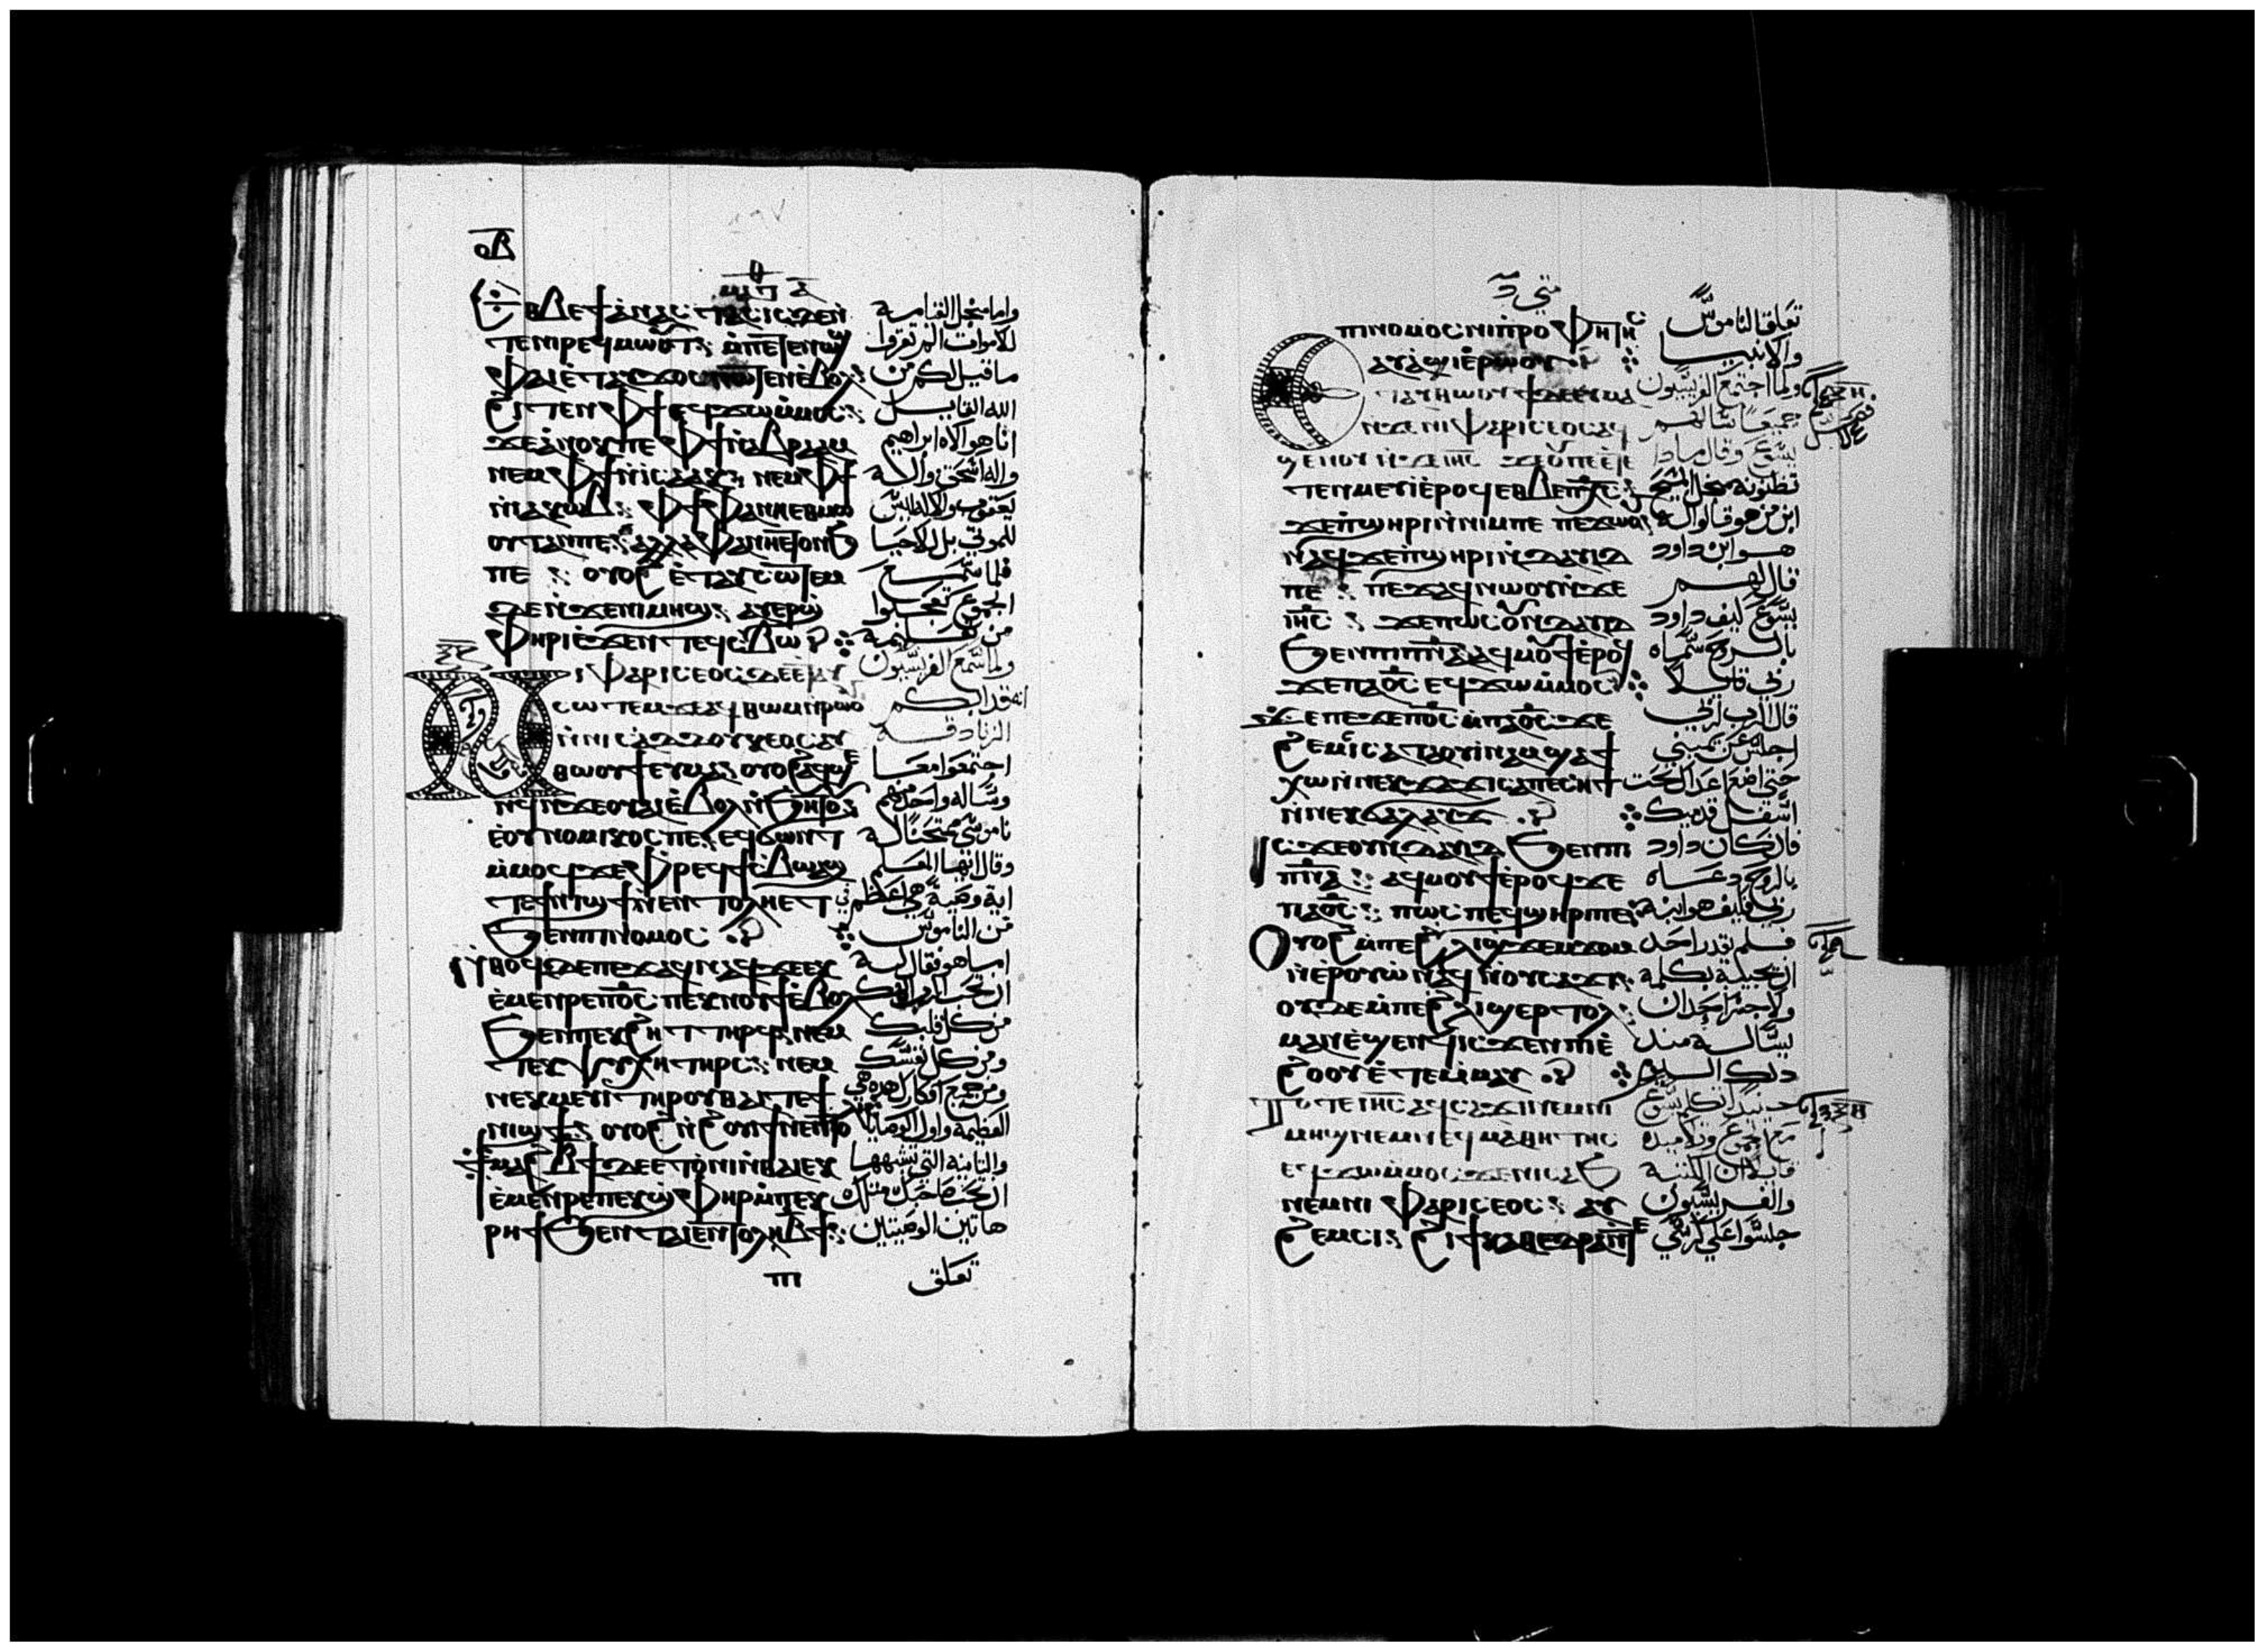 ⲟⲃ
ⲉⲑⲃⲉ ϯⲁⲛⲁⲥⲧⲁⲥⲓⲥ ⲇⲉ ⲛ̀
ⲧⲉ ⲛⲓⲣⲉϥⲙⲱⲟⲩⲧ ⁝ ⲙ̀ⲡⲉⲧⲉⲛⲱϣ
ⲫⲁⲓ ⲉ̀ⲧⲁⲩϫⲟⲥ ⲛⲱⲧⲉⲛ ⲉ̀ⲃⲟⲗ
ϩⲓⲧⲉⲛ ⲫϯ ⲉϥϫⲱ ⲙ̀ⲙⲟⲥ ⁝
ϫⲉ ⲁⲛⲟⲕ ⲡⲉ ⲫϯ ⲛ̀ⲁⲃⲣⲁⲁⲙ
ⲛⲉⲙ ⲫϯ ⲛ̀ⲓⲥⲁⲁⲕ ⁝ ⲛⲉⲙ ⲫϯ
ⲛ̀ⲓⲁⲕⲱⲃ ⁝ ⲫϯ ⲫⲁ ⲛⲏⲉⲑⲙⲱ
ⲟⲩⲧ ⲁⲛ ⲡⲉ ⁝ ⲁⲗⲗⲁ ⲫⲁ ⲛⲏⲉⲧⲟⲛϧ
ⲡⲉ ⁝ ⲟⲩⲟϩ ⲉ̀ⲧⲁⲩⲥⲱⲧⲉⲙ
ⲇⲉ ⲛ̀ϫⲉ ⲛⲓⲙⲏϣ ⁝ ⲁⲩⲉⲣϣ̀
ⲫⲏⲣⲓ ⲉ̀ϫⲉⲛ ⲧⲉϥⲥⲃⲱ
ⲛⲓⲫⲁⲣⲓⲥⲉⲟⲥ ⲇⲉ ⲉ̀ⲧⲁⲩ
ⲥⲱⲧⲉⲙ ϫⲉ ⲁϥⲑⲱⲙ ⲛ̀ⲣⲱⲟⲩ
ⲛ̀ⲛⲓⲥⲁⲇⲇⲟⲩⲕⲉⲟⲥ ⲁⲩ
ⲑⲱⲟⲩϯ ⲉⲩⲙⲁ ⁝ ⲟⲩⲟϩ ⲁϥϣⲉ
ⲛϥ ⲛ̀ϫⲉ ⲟⲩⲁⲓ ⲉ̀ⲃⲟⲗ ⲛ̀ϧⲏⲧⲟⲩ
ⲉ̀ⲟⲩⲛⲟⲙⲓⲕⲟⲥ ⲡⲉ ⁝ ⲉϥϭⲱⲛⲧ
ⲙ̀ⲙⲟϥ ϫⲉ ⲫⲣⲉϥϯⲥ̀ⲃⲱ ⲁϣ
ⲧⲉ ϯⲛⲓϣϯ ⲛ̀ⲉⲛⲧⲟⲗⲏ ⲉⲧ
ϧⲉⲛ ⲡⲓⲛⲟⲙⲟⲥ
ⲛ̀ⲑⲟϥ ⲇⲉ ⲡⲉϫⲁϥ ⲛⲁϥ ϫⲉ ⲉⲕ
ⲉ̀ⲙⲉⲛⲣⲉ ⲡⲟ̅ⲥ̅ ⲡⲉⲕⲛⲟⲩϯ ⲉ̀ⲃⲟⲗ
ϧⲉⲛ ⲡⲉⲕϩⲏⲧ ⲧⲏⲣϥ ⁝ ⲛⲉⲙ
ⲧⲉⲕⲯⲩⲭⲏ ⲧⲏⲣⲥ ⁝ ⲛⲉⲙ
ⲛⲉⲕⲙⲉⲩⲓ ⲧⲏⲣⲟⲩ ⲑⲁⲓ ⲧⲉ ϯ
ⲛⲓϣϯ ⁝ ⲟⲩⲟϩ ⲛ̀ϩⲟⲩⲓϯ ⲛ̀ⲉⲛⲧⲟ
ϯⲙⲁϩⲃ̅ϯ ⲇⲉ ⲉⲧⲟⲛⲓ ⲛ̀ⲑⲁⲓ ⲉⲕ
ⲉ̀ⲙⲉⲛⲣⲉ ⲡⲉⲕϣ̀ⲫⲏⲣ ⲙ̀ⲡⲉⲕ
ⲣⲏϯ ϧⲉⲛ ⲧⲁⲓⲉⲛⲧⲟⲗⲏ ⲃ̅ϯ ⁝
ⲡⲓ
واما من اجل القيامة
للاموات الم تقروا
ما قيل لكم من
الله القايل
انا هو الاه ابراهيم
واله اسحق واله
يعقوب والاله ليس
للموتي بل للاحيا
فلما سمع
الجموع تعجبوا
من تعليمه
ولما سمع الفريسيون
انه قد ابكم
الزنادقه
اجتمعوا معا
وساله واحد منهم
ناموسي ممتحنا له
وقال ايها المعلم
اية وصية هي اعظم
في الناموس
اما هو فقال له
ان تحب الرب الهك
من كل قلبك
ومن كل نفسك
ومن جميع افكارك هده هي
العظيمة واول الوصايا
والتانيه التي تشبهها
ان تحب صاحبك مثلك
هاتين الوصيتين
تعلق
متي
ⲡⲓⲛⲟⲙⲟⲥ ⲛⲓⲡ̀ⲣⲟⲫⲏⲧⲏⲥ
ⲁⲩⲁ̀ϣⲓ ⲉ̀ⲣⲱⲟⲩ
ⲉⲧⲁⲩⲑⲱⲟⲩϯ ⲇⲉ ⲉⲩⲙⲁ
ⲛ̀ϫⲉ ⲛⲓⲫⲁⲣⲓⲥⲉⲟⲥ ⲁϥ
ϣⲉⲛⲟⲩ ⲛ̀ϫⲉ ⲓⲏ̅ⲥ̅ ϫⲉ ⲟⲩ ⲡⲉⲧⲉ
ⲧⲉⲛⲙⲉⲩⲓ ⲉ̀ⲣⲟϥ ⲉⲑⲃⲉ ⲡⲭ̅ⲥ̅ ⁝
ϫⲉ ⲡ̀ϣⲏⲣⲓ ⲛ̀ⲛⲓⲙ ⲡⲉ ⲡⲉϫⲱⲟⲩ
ⲛⲁϥ ϫⲉ ⲡ̀ϣⲏⲣⲓ ⲛ̀ⲇⲁⲩⲓⲇ
ⲡⲉ ⁝ ⲡⲉϫⲁϥ ⲛⲱⲟⲩ ⲛ̀ϫⲉ
ⲓⲏ̅ⲥ̅ ⁝ ϫⲉ ⲡⲱⲥ ⲟⲩⲛ ⲇⲁⲩⲓⲇ
ϧⲉⲛ ⲡⲓⲡ̅ⲛ̅ⲁ̅ ⲁϥⲙⲟⲩϯ ⲉ̀ⲣⲟϥ
ϫⲉ ⲡⲁⲟ̅ⲥ̅ ⲉϥϫⲱ ⲙ̀ⲙⲟⲥ
ϫⲉ ⲡⲉϫⲉ ⲡⲟ̅ⲥ̅ ⲙ̀ⲡⲁⲟ̅ⲥ̅ ϫⲉ
ϩⲉⲙⲥⲓ ⲥⲁⲧⲁⲟⲩⲓⲛⲁⲙ ϣⲁϯ
ⲭⲱ ⲛ̀ⲛⲉⲕϫⲁϫⲓ ⲥⲁⲡⲉⲥⲏⲧ
ⲛ̀ⲛⲉⲕϭⲁⲗⲁⲩϫ
ⲓⲥϫⲉ ⲟⲩⲛ ⲇⲁⲩⲓⲇ ϧⲉⲛ ⲡⲓ
ⲡ̅ⲛ̅ⲁ̅ ⁝ ⲁϥⲙⲟⲩϯ ⲉ̀ⲣⲟϥ ϫⲉ
ⲡⲁⲟ̅ⲥ̅ ⁝ ⲡⲱⲥ ⲡⲉϥϣⲏⲣⲓ ⲡⲉ
ⲟⲩⲟϩ ⲙ̀ⲡⲉ ϩⲗⲓ ϣϫⲉⲙϫⲟⲙ
ⲛ̀ⲉⲣⲟⲩⲱ̀ ⲛⲁϥ ⲛ̀ⲟⲩⲥⲁϫⲓ ⁝
ⲟⲩⲇⲉ ⲙ̀ⲡⲉ ϩⲗⲓ ϣⲉⲣⲧⲟⲗ
ⲙⲁⲛ ⲉ̀ϣⲉⲛϥ ⲓⲥϫⲉⲛ ⲡⲓⲉ̀
ϩⲟⲟⲩ ⲉ̀ⲧⲉⲙ̀ⲙⲁⲩ
ⲧⲟⲧⲉ ⲓⲏ̅ⲥ̅ ⲁϥⲥⲁϫⲓ ⲛⲉⲙ ⲛⲓ
ⲙⲏϣ ⲛⲉⲙ ⲛⲉϥⲙⲁⲑⲏⲧⲏⲥ
ⲉϥϫⲱ ⲙ̀ⲙⲟⲥ ϫⲉ ⲛⲓⲥⲁϧ
ⲛⲉⲙ ⲛⲓⲫⲁⲣⲓⲥⲉⲟⲥ ⁝ ⲁⲩ
ϩⲉⲙⲥⲓ ϩⲓ ϯⲕⲁⲑⲉⲇⲣⲁ ⲛ̀ⲧⲉ
تعلقا الناموس
والانبيا
ولما اجتمع الفريسيون
جميعا سالهم
يسوع وقال مادا
تظنونه من اجل المسيح
ابن من هو قالوا له
هو ابن داود
قال لهم
يسوع كيف داود
بالروح سماه
ربي قايلا
قال الرب لربي
اجلس عن يميني
حتي اضع اعداك تحت
اسفل قدميك
فان كان داود
بالروح دعاه
ربي فكيف هو ابنه
فلم يقدر احد
ان يجيبه بكلمة
ولا جسر احد ان
يساله مند
دلك اليوم
حينيد تكلم يسوع
مع الجموع وتلاميده
قايلا ان الكتبة
والفريسيون
جلسوا علي كرسي